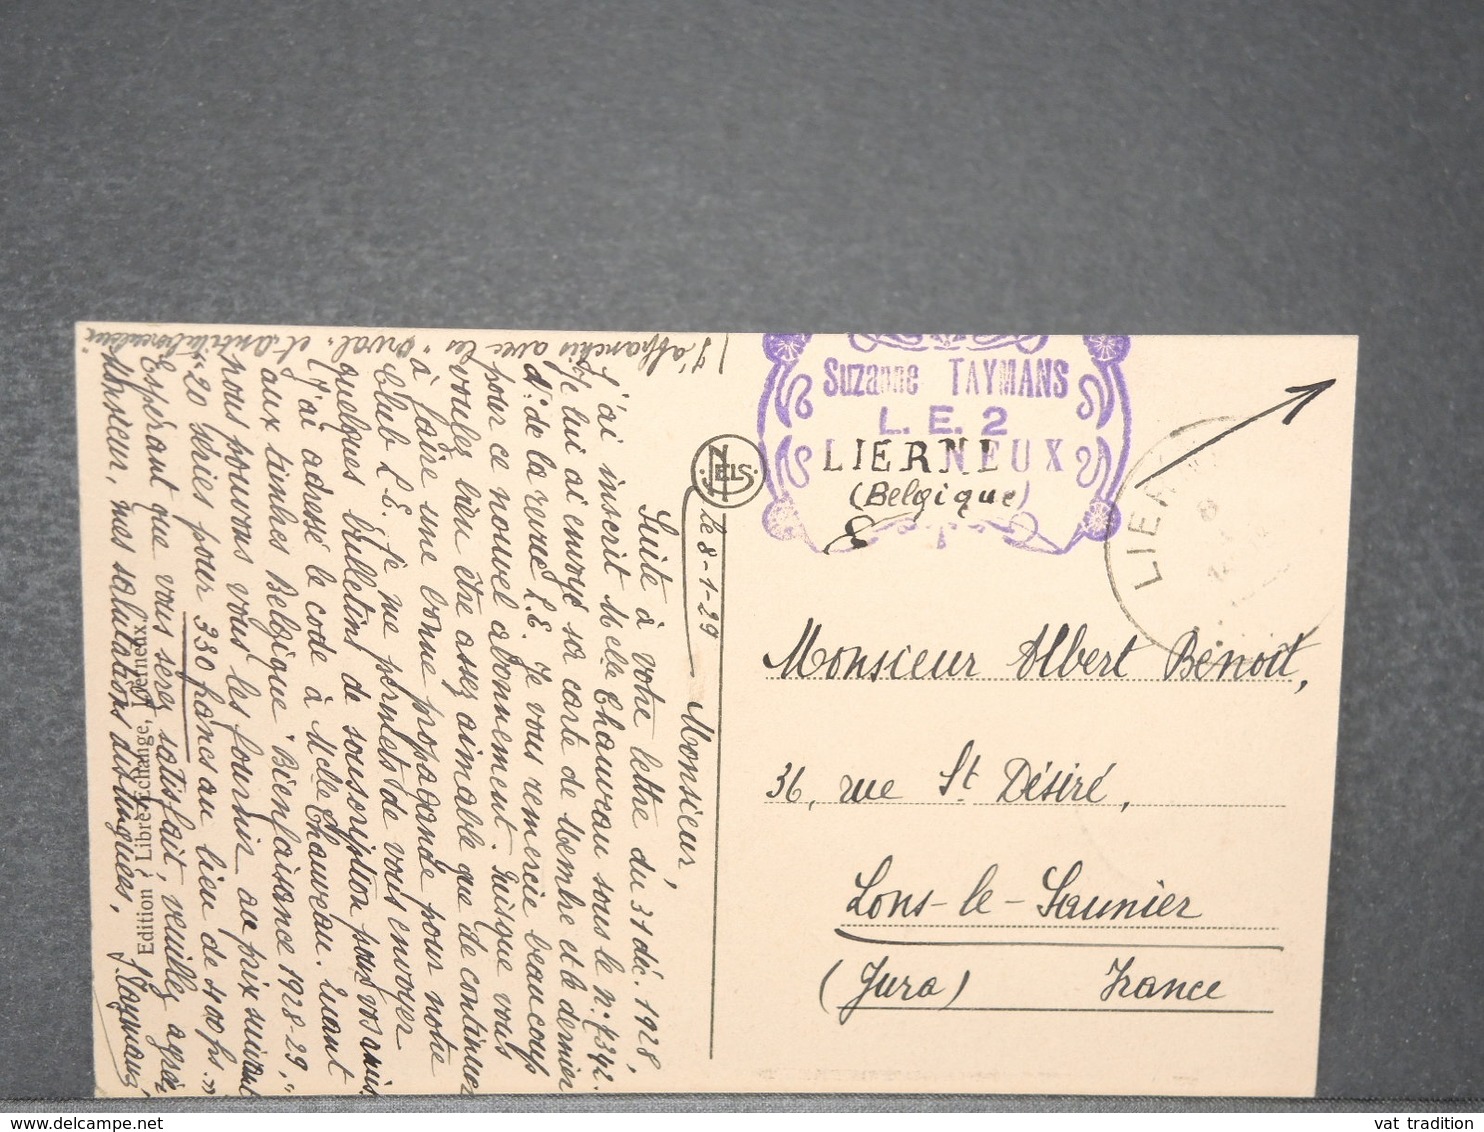 Suzanne TAYMANS
L. E. 2
LIERNEUX
(Belgique)
LIERNEUX
NELS
le 8-1-29
Monsieur,
Suite à votre lettre du 31 déc. 1928,
j'ai inscrit Melle Chauveau sous le n: 7342.
Je lui ai envoyé sa carte de Membre et le dernier
n: de la revue L.E. Je vous remercie beaucoup
pour ce nouvel abonnement. Puisque vous
voulez bien être assez aimable que de continuer
à faire une bonne propagande pour notre
Club L.E. je me permets de vous envoyer
quelques bulletins de souscription pour vos amis.
(J'ai adressé le code à Melle Chauveau. Quant
aux timbres Belgique "Bienfaisance 1928-29,"
nous pouvons vous les fournir au prix suivant
"20 séries pour 330 francs au lieu de 400 frs."
Espérant que vous serez satisfait, veuillez agréer
Monsieur, mes salutations distinguées,
S. Taymans
(J'affranchis avec les "Orval" et antituberculeux"
Edition : Libre-Echange, Lierneux.
Monsieur Albert Benoit,
36, rue St Désiré,
Lons-le-Saunier
(Jura) France
vat tradition
www.delcampe.net